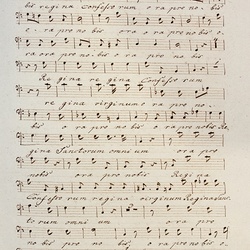 bis regina Confessorum ora pro no bis
e. ora pro nobis ora ora pro nobis e.
ra ora pro nobis ora pro no bis
Re gina re gina Confesso rum
re gina virginum ora pro no.
bis ora pro no bis ora pro nobis Re.
gina Sanctorum omni um ora pro
nobis ora pro nobis Regi na
Confesso rum regina virginum Regina Sanc.
torum omni um o ra pro
no bis pro no bis, o ra pro no bis